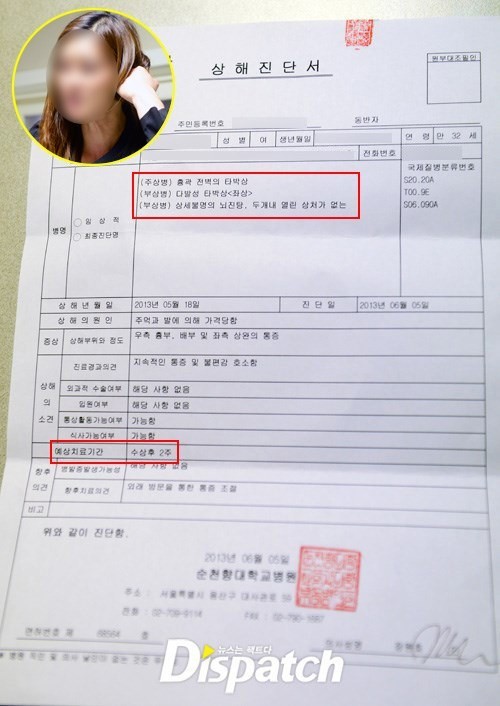 상해진단서
원부대조필인
주민등록번호 동반자
성별 여 생년월일 연령 만 32 세
전화번호 국제질병분류번호
병명
임상적
최종진단명
(주상병) 흉곽 전벽의 타박상 S20.20A
(부상병) 다발성 타박상<좌상> T00.9E
(부상병) 상세불명의 뇌진탕, 두개내 열린 상처가 없는 S06.090A
상해년월일 2013년 05월 18일 진단일 2013년 06월 05일
상해의원인 주먹과 발에 의해 가격당함
증상 상해부위와 정도 우측 흉부, 배부 및 좌측 상완의 통증
상해의 소견
진료경과의견 지속적인 통증 및 불편감 호소함
외과적 수술여부 해당 사항 없음
입원여부 해당 사항 없음
통상활동가능여부 가능함
식사가능여부 가능함
예상치료기간 수상후 2주
향후의견
병발증발생가능성 해당 사항 없음
향후치료의견 외래 방문을 통한 통증 조절
비고
위와 같이 진단함.
2013년 06월 05일
순천향대학교병원
주소 : 서울특별시 용산구 대사관로 59
전화 : 02-709-9114 FAX : 02-790-1697
면허번호 제 호 의사성명
뉴스는 팩트다
Dispatch